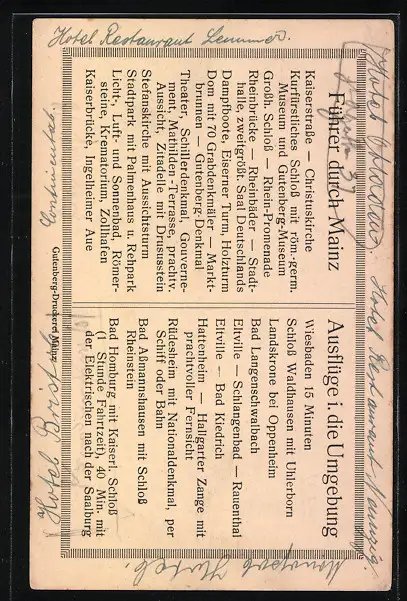 Hotel Restaurant Lemmer.
Führer durch Mainz
Kaiserstraße — Christuskirche
Kurfürstliches Schloß mit röm.-germ.
Museum und Gutenberg-Museum
Großh. Schloß — Rhein-Promenade
Rheinbrücke — Rheinbäder — Stadt-
halle, zweitgrößt. Saal Deutschlands
Dampfboote, Eiserner Turm, Holzturm
Dom mit 70 Grabdenkmäler — Markt-
brunnen — Gutenberg-Denkmal
Theater, Schillerdenkmal, Gouverne-
ment, Mathilden-Terrasse, prachtv.
Aussicht, Zitadelle mit Drususstein
Stefanskirche mit Aussichtsturm
Stadtpark mit Palmenhaus u. Rehpark
Licht-, Luft- und Sonnenbad, Römer-
steine, Krematorium, Zollhafen
Kaiserbrücke, Ingelheimer Aue
Ausflüge i. die Umgebung
Wiesbaden 15 Minuten
Schloß Waldhausen mit Uhlerborn
Landskrone bei Oppenheim
Bad Langenschwalbach
Eltville — Schlangenbad — Rauenthal
Eltville — Bad Kiedrich
Hattenheim — Hallgarter Zange mit
prachtvoller Fernsicht
Rüdesheim mit Nationaldenkmal, per
Schiff oder Bahn
Bad Aßmannshausen mit Schloß
Rheinstein
Bad Homburg mit Kaiserl. Schloß
(1 Stunde Fahrtzeit), 40 Min. mit
der Elektrischen nach der Saalburg
Gutenberg-Druckerei Mainz
Hotel
Hotel Restaurant
Hotel Bristol
Hotel